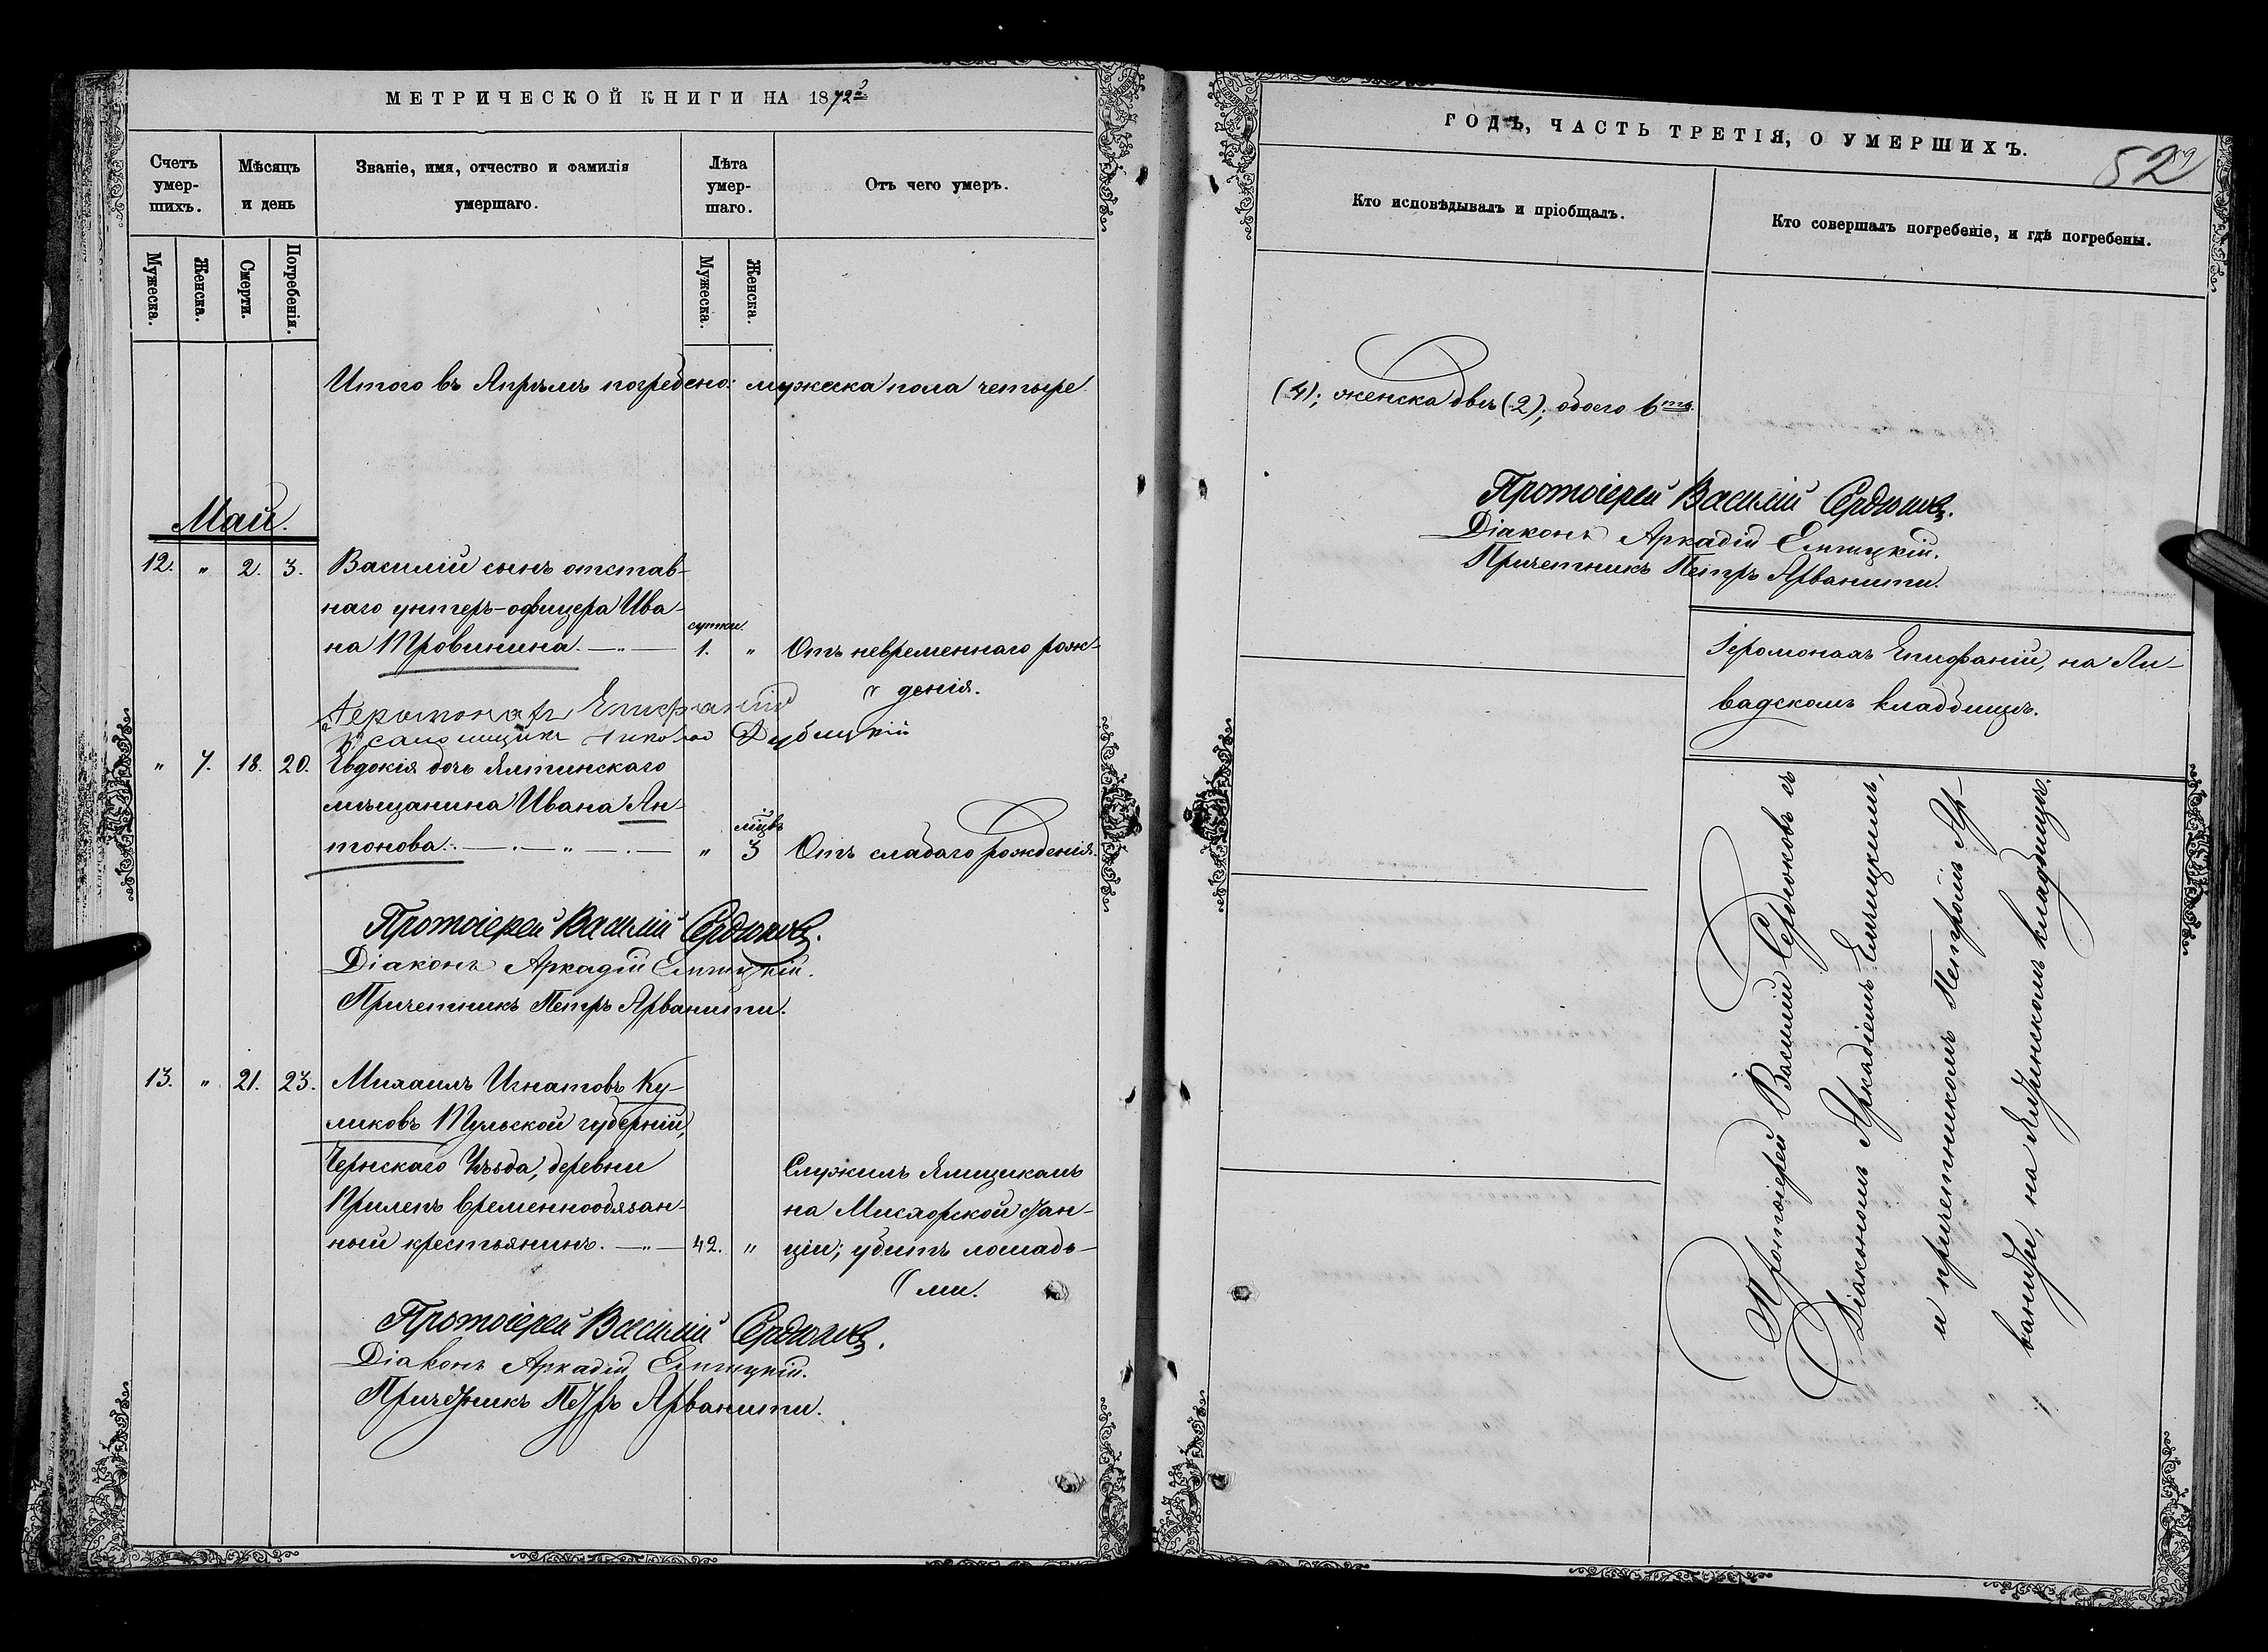 МЕТРИЧЕСКОЙ КНИГИ НА 1872й
Счетъ умер-шихъ.
Мѣсяцъ и день
Званіе, имя, отчество и фамилія умершаго.
Лѣта умер-шаго.
Отъ чего умеръ.
Мужеска.
Женска.
Смерти.
Погребенія.
Мужеска.
Женска.
Итого въ Апрѣлѣ погребено: мужеска пола четыре
Май.
12. " 2. 3. Василій сынъ отстав-
наго унтеръ-офицера Ива-
сутки.
на Тровинина. 1. " Отъ невременнаго рож-
денія.
Іеромонахъ Епифаній
Дубицкій
" 7. 18. 20. Евдокія дочь Ялтинскаго
мѣщанина Ивана Ан-
мѣцв
тонова. " 3 Отъ слабаго рожденія.
Протоіерей Василій Сердюковъ.
Діаконъ Аркадій Елпицкій.
Причетникъ Петръ Арванити.
13. " 21. 23. Михаилъ Игнатовъ Ку-
ликовъ Тульской губерніи,
Чернскаго Уѣзда, деревни Служилъ Ямщикомъ
Прилепъ временнообязан- на Мисхорской стан-
ный крестьянинъ. 42. " ціи; убитъ лошадь-
ми.
Протоіерей Василій Сердюковъ.
Діаконъ Аркадій Елпицкій.
Причетникъ Петръ Арванити.
ГОДЪ, ЧАСТЬ ТРЕТІЯ, О УМЕРШИХЪ.
52
59
Кто исповѣдывалъ и пріобщалъ.
Кто совершалъ погребеніе, и гдѣ погребены.
(4); женска двѣ (2); обоего 6ть.
Протоіерей Василій Сердюковъ.
Діаконъ Аркадій Елпицкій.
Причетникъ Петръ Арванити.
Іеромонахъ Епифаній, на Ли-
вадскомъ кладбищѣ.
Протоіерей Василій Сердюковъ съ
Діакономъ Аркадіемъ Елпицкимъ,
и причетникомъ Петромъ Ар-
ванити, на Ялтинскомъ кладбищѣ.